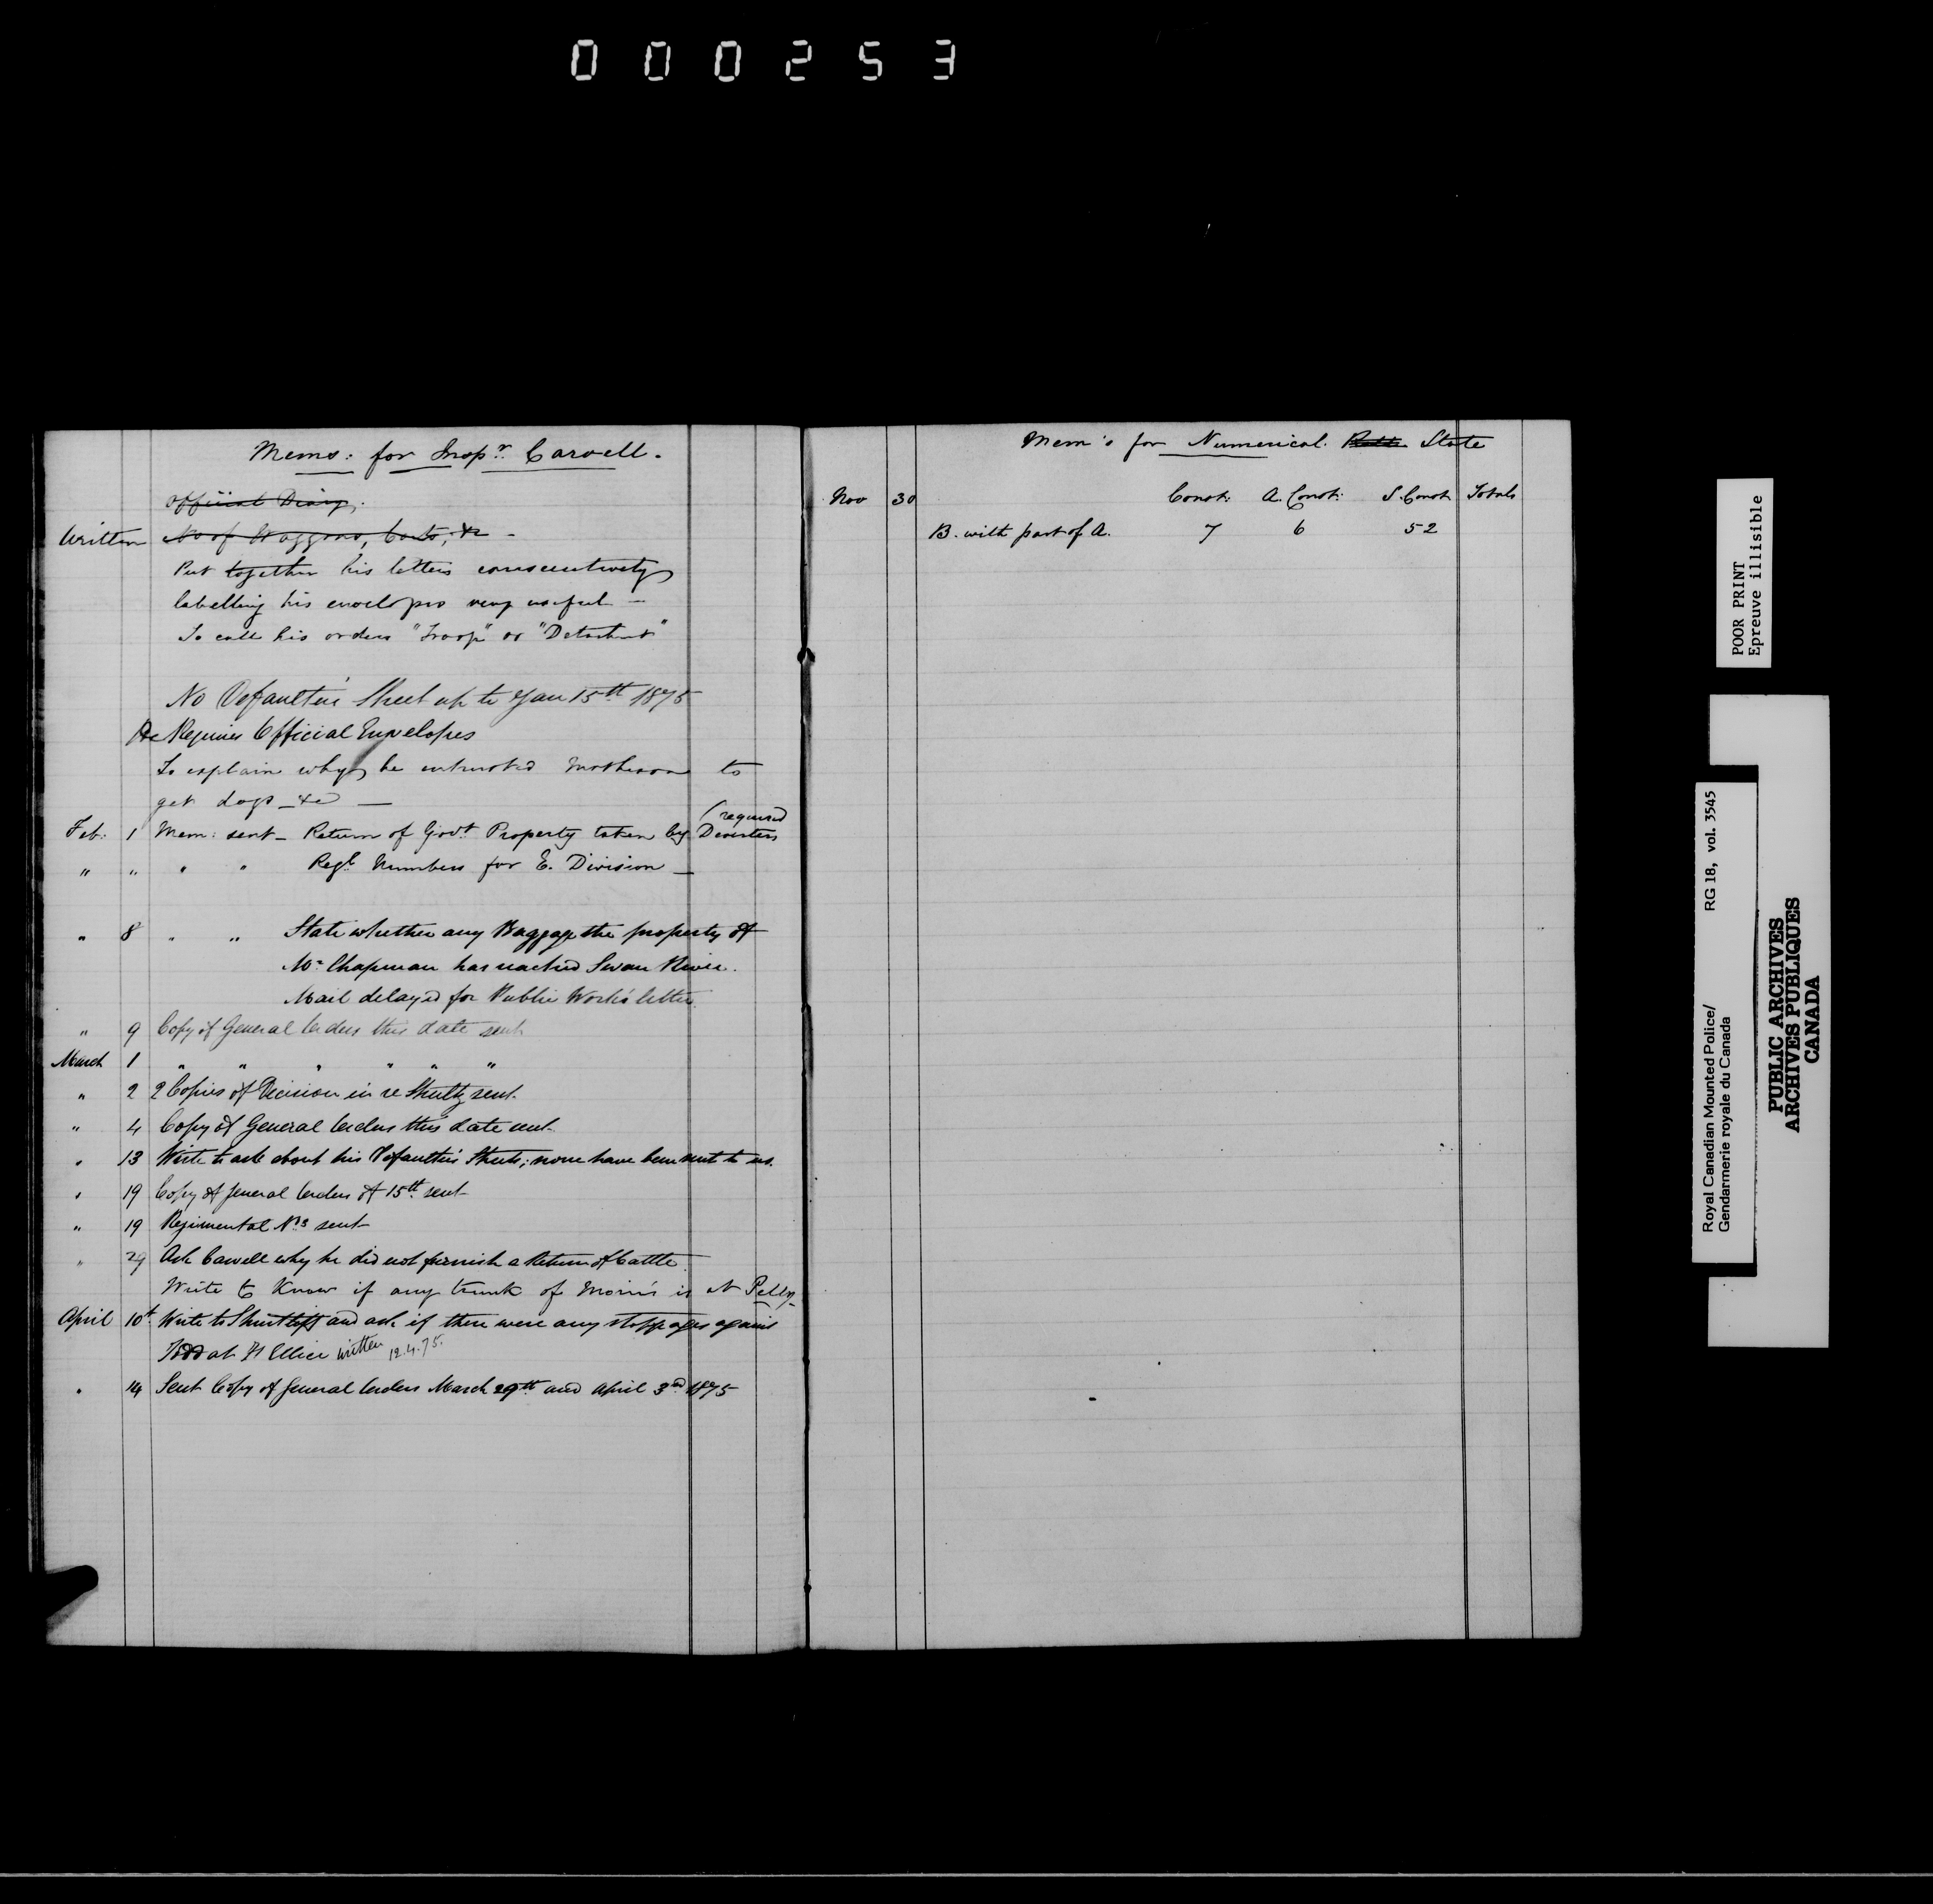 000253
Memo: for Inspr. Carvell.
Official Diary.
Written No of Waggons, Carts, &c -
Put together his letters consecutively
labelling his envelopes very useful -
To call his orders "Troop" or "Detachmt"
No Defaulters' Sheet up to Jan 15th 1875
He Requires Official Envelopes
To explain why he entrusted Matheson to
get dogs - &c -
(required
Feb: 1 Mem: sent - Return of Govt Property taken by Deserters
" " " " Regl Numbers for E. Division -
" 8 " " State whether any Baggage the property of
Mr Chapman has reached Swan River.
Mail delayed for Public Work's letter.
" 9 Copy of General Orders this date sent
March 1 " " " " " "
" 2 2 Copies of Decision in re Shultz sent.
" 4 Copy of General Orders this date sent.
" 13 Write to ask about his Defaulters' Sheets; none have been sent to us.
" 19 Copy of General Orders of 15th sent
" 19 Regimental Nos sent
" 29 Ask Carvell why he did not furnish a Return of Cattle.
Write to know if any trunk of Morin's is at Pelly.
April 10t Write to Shurtliff and ask if there were any stoppages against
Todd at Ft Ellice written 12.4.75.
" 14 Sent Copy of General Orders March 29th and April 3rd 1875
Mem's for Numerical State
Nov 30 Const: A. Const: S. Const Totals
B. with part of A. 7 6 52
POOR PRINT
Epreuve illisible
Royal Canadian Mounted Police/ RG 18, vol. 3545
Gendarmerie royale du Canada
PUBLIC ARCHIVES
ARCHIVES PUBLIQUES
CANADA